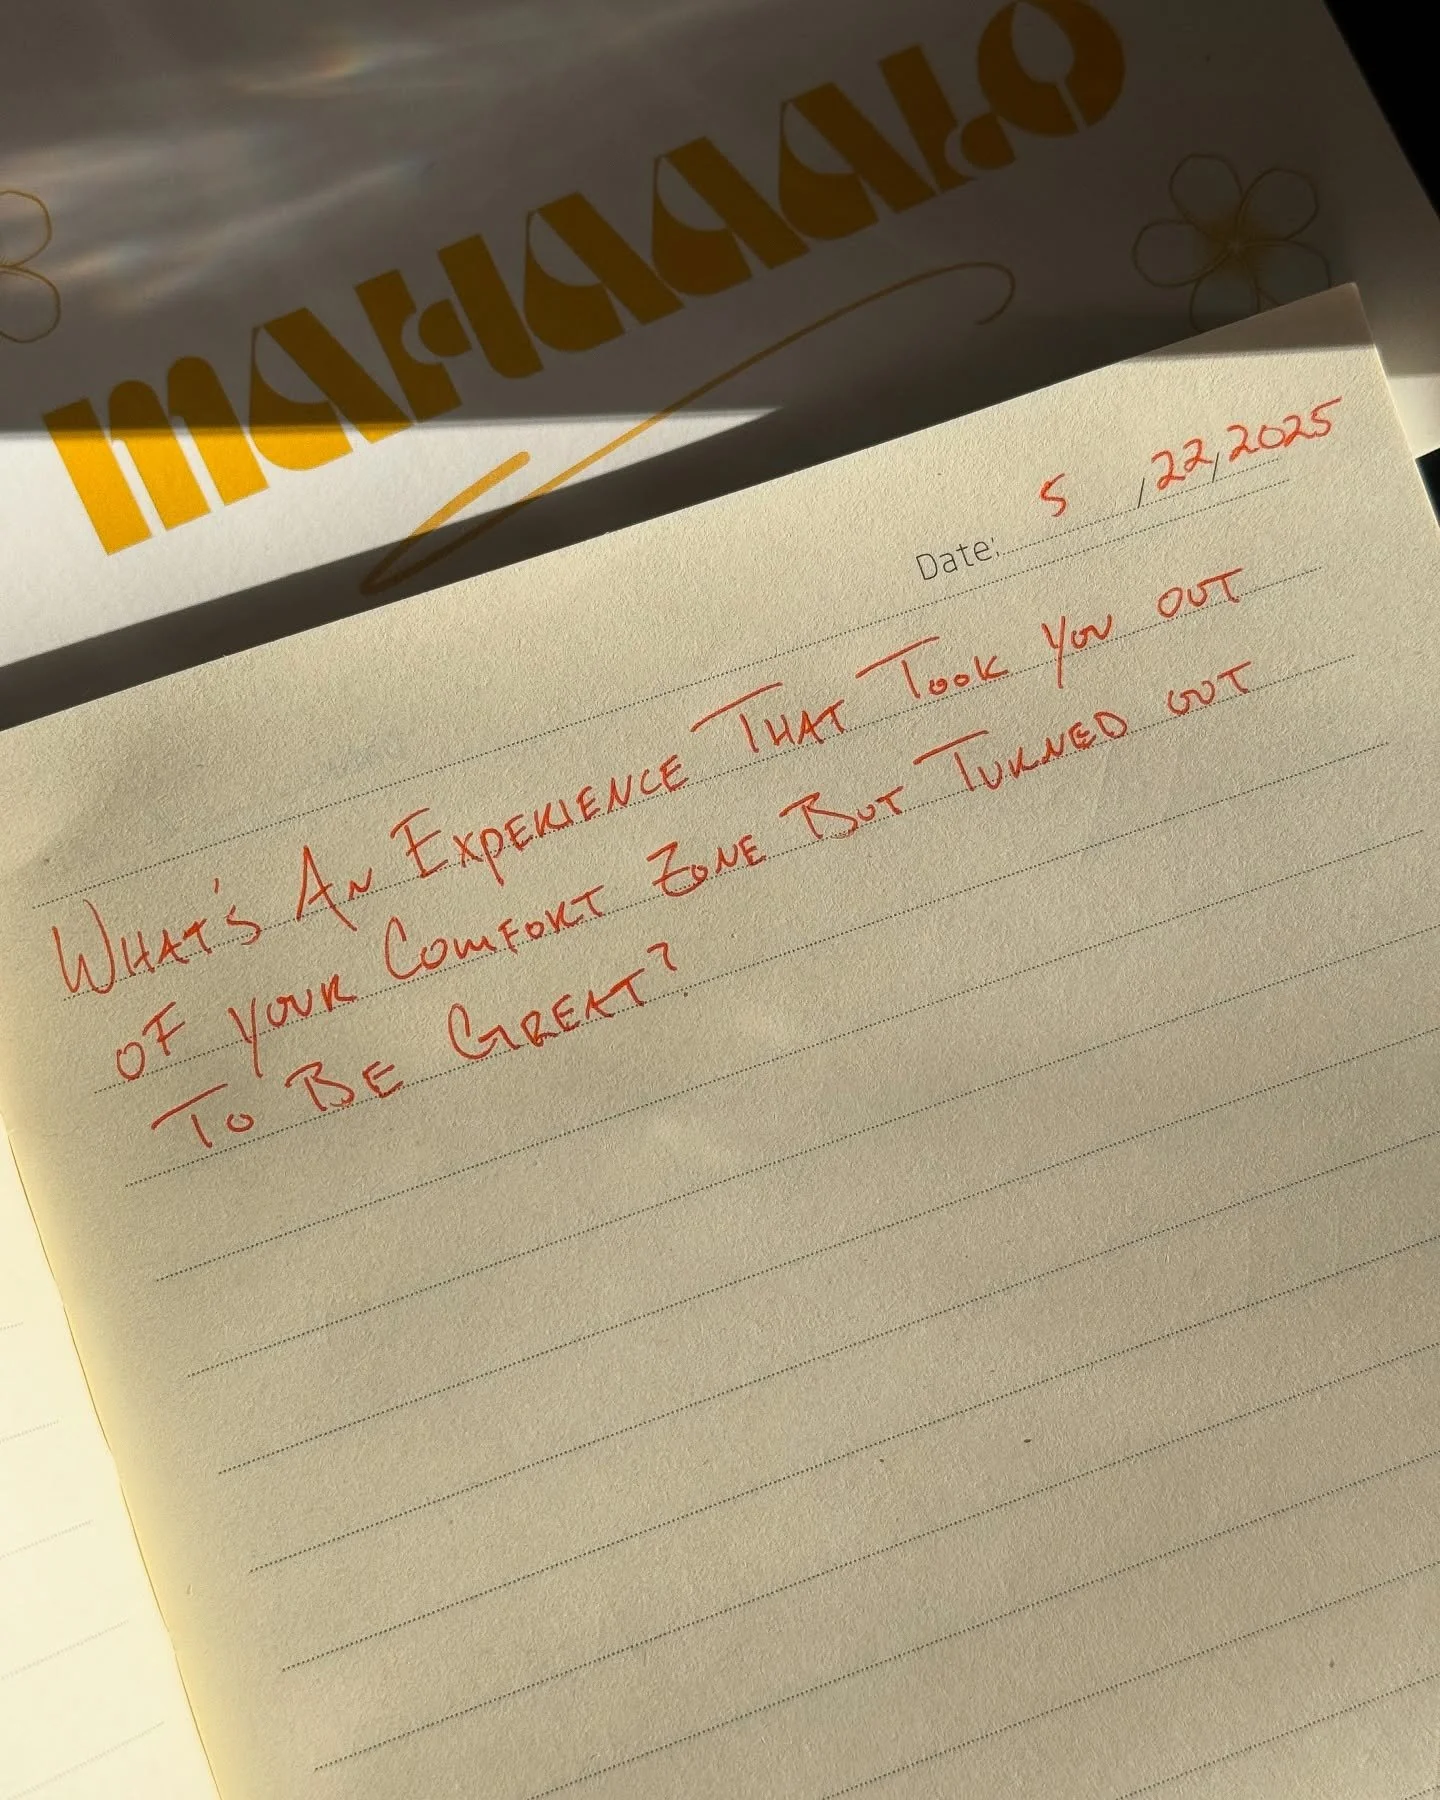 MAHAAALO
Date: 5 / 22, 2025
WHAT'S AN EXPERIENCE THAT TOOK YOU OUT
OF YOUR COMFORT ZONE BUT TURNED OUT
TO BE GREAT?